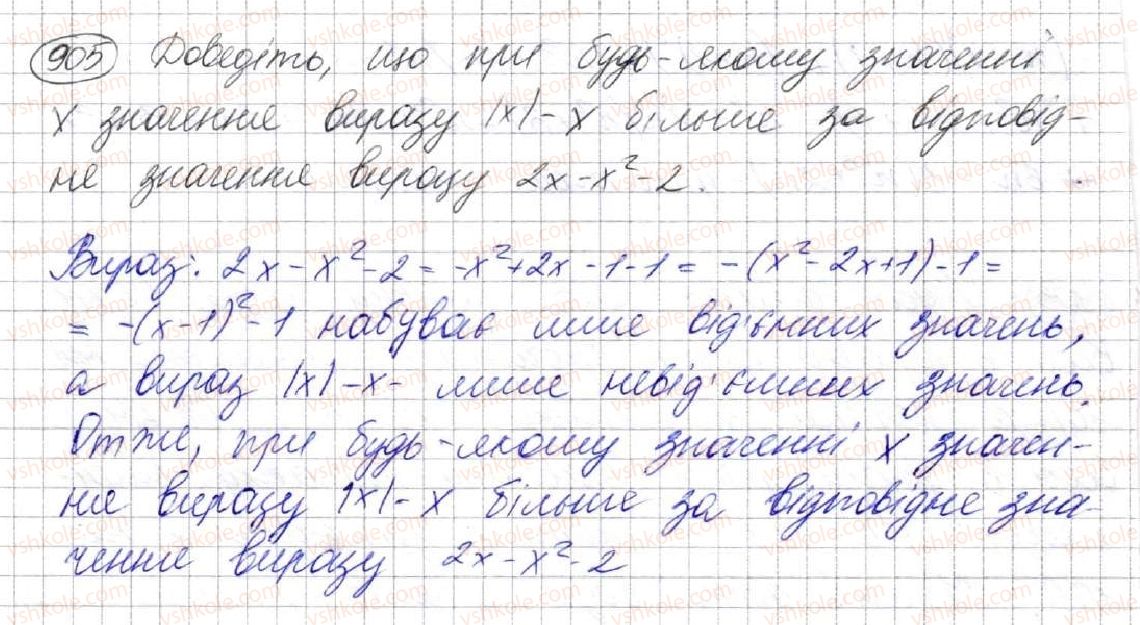 905 Доведіть, що при будь-якому значенні
x значення виразу |x|-x більше за відповід-
не значення виразу 2x-x²-2.
Вираз: 2x-x²-2=-x²+2x-1-1=-(x²-2x+1)-1=
=-(x-1)²-1 набуває лише від'ємних значень,
а вираз |x|-x- лише невід'ємних значень.
Отже, при будь-якому значенні x значен-
ня виразу |x|-x більше за відповідне зна-
чення виразу 2x-x²-2